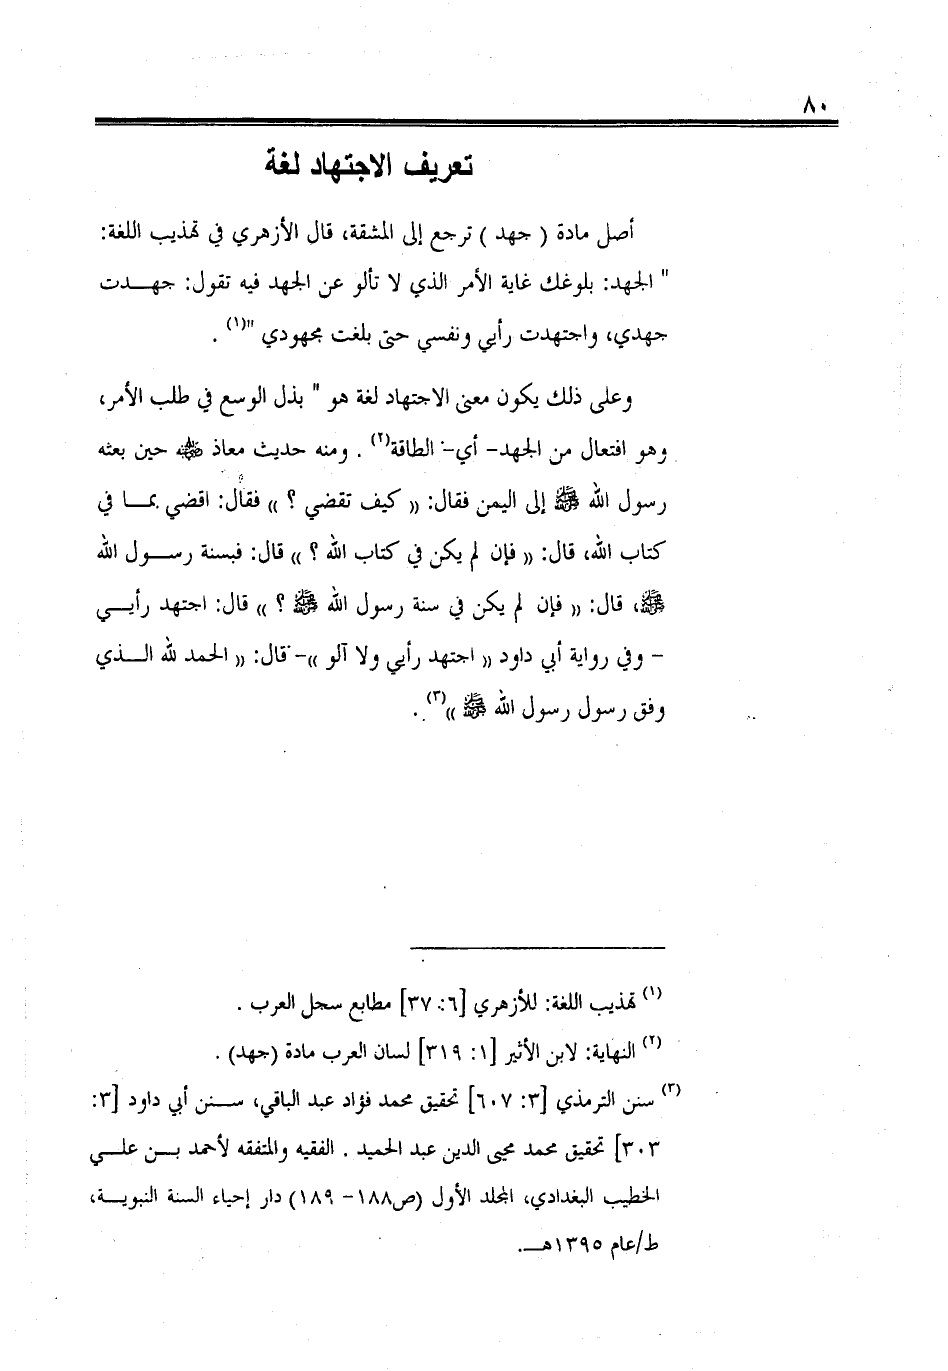 ٨٠
تعريف الاجتهاد لغة
أصل مادة ( جهد ) ترجع إلى المشقة، قال الأزهري في تهذيب اللغة:
" الجهد: بلوغك غاية الأمر الذي لا تألو عن الجهد فيه تقول: جهـــدت
جهدي، واجتهدت رأيي ونفسي حتى بلغت مجهودي "(١) .
وعلى ذلك يكون معنى الاجتهاد لغة هو " بذل الوسع في طلب الأمر،
وهو افتعال من الجهد- أي- الطاقة(٢) . ومنه حديث معاذ ﷺ حين بعثه
رسول الله ﷺ إلى اليمن فقال: (( كيف تقضي ؟ )) فقال: اقضي بمـــا في
كتاب الله، قال: (( فإن لم يكن في كتاب الله ؟ )) قال: فبسنة رســـول الله
ﷺ، قال: (( فإن لم يكن في سنة رسول الله ﷺ ؟ )) قال: اجتهد رأيـــي
- وفي رواية أبي داود (( اجتهد رأيي ولا آلو ))- قال: (( الحمد لله الـــذي
وفق رسول رسول الله ﷺ ))(٣) .
(١) تهذيب اللغة: للأزهري [٦: ٣٧] مطابع سجل العرب .
(٢) النهاية: لابن الأثير [١: ٣١٩] لسان العرب مادة (جهد) .
(٣) سنن الترمذي [٣: ٦٠٧] تحقيق محمد فؤاد عبد الباقي، ســـنن أبي داود [٣:
٣٠٣] تحقيق محمد محيي الدين عبد الحميد . الفقيه والمتفقه لأحمد بـــن علـــي
الخطيب البغدادي، المجلد الأول (ص١٨٨- ١٨٩) دار إحياء السنة النبويـــة،
ط/عام ١٣٩٥هـــ.